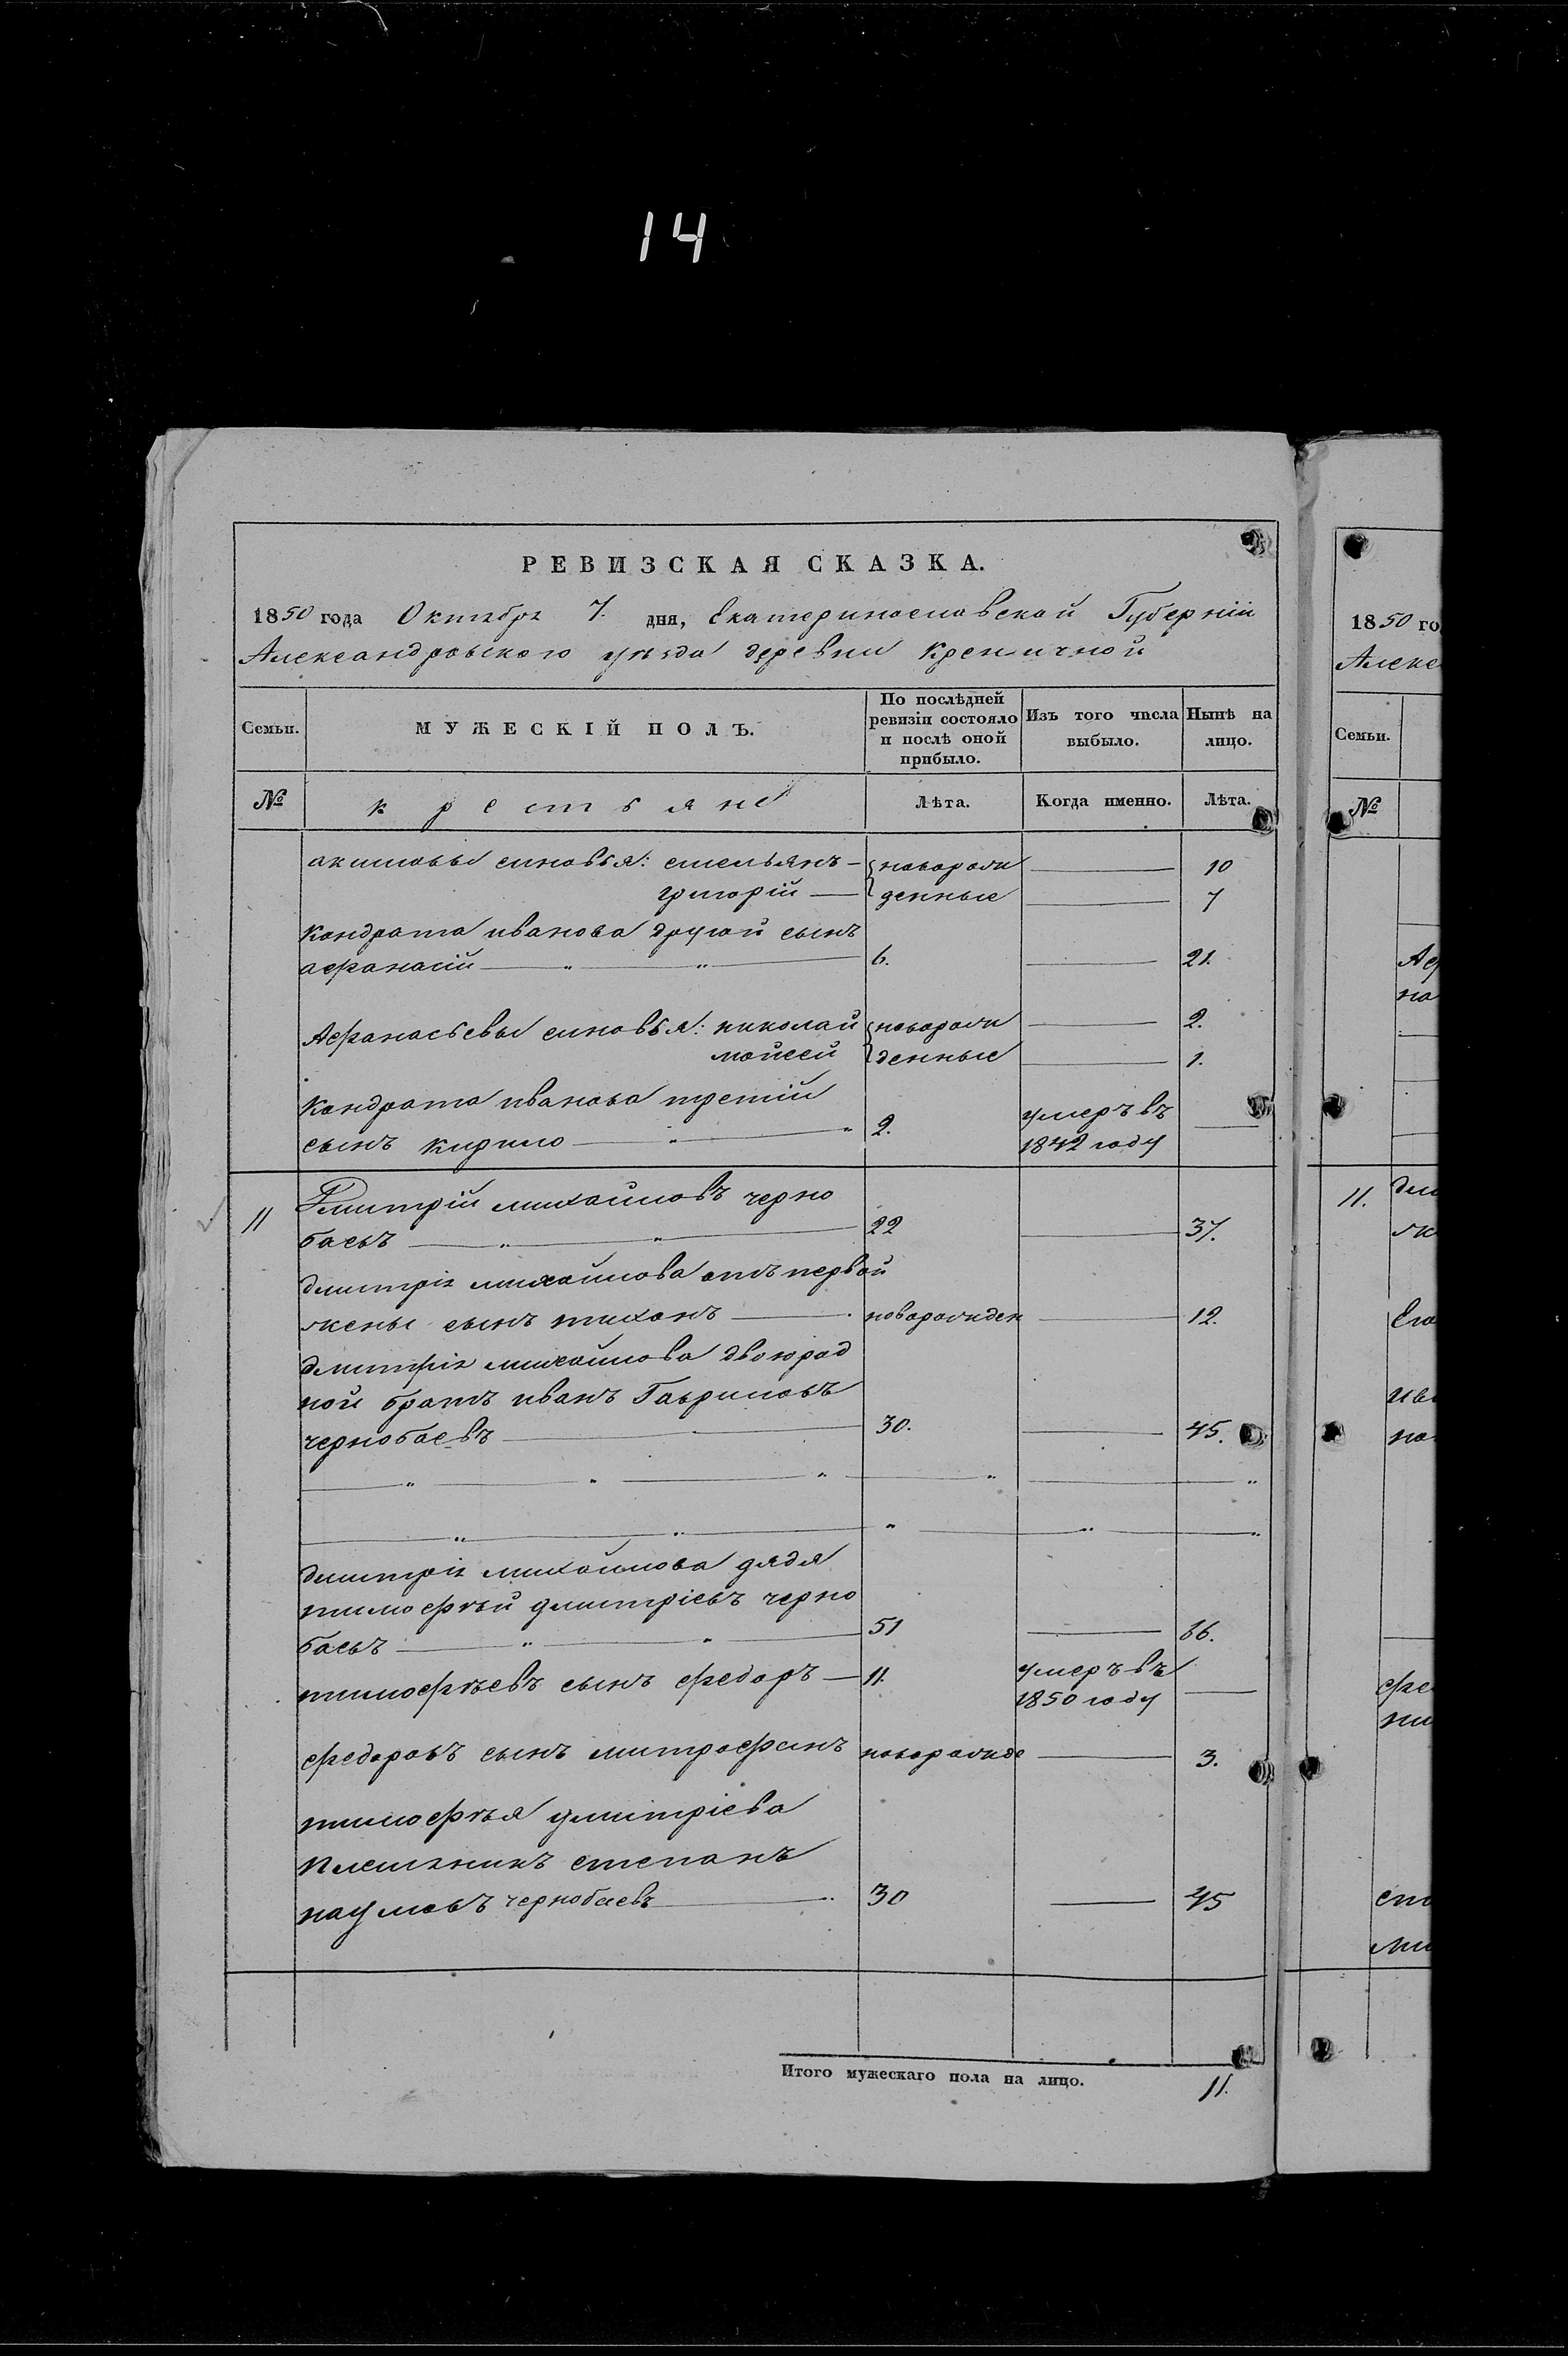 14
РЕВИЗСКАЯ СКАЗКА.
1850 года Октября 7. дня, Екатеринославской Губерніи
Александровского уѣзда деревни Кременчуной
Семьи. МУЖЕСКІЙ ПОЛЪ. По послѣдней ревизіи состояло и послѣ оной прибыло. Изъ того числа выбыло. Нынѣ на лицо.
№ крестьяне Лѣта. Когда именно. Лѣта.
акимовы сыновья: емельянъ — новорож — 10
григорій — денные — 7
Кондрата иванова другой сынъ
афанасій — " — " — 6. — 21.
Афанасьевы сыновья: николай новорож — 2.
мойсей денные — 1.
Кондрата иванова третій умеръ въ
сынъ кирило — " — " 2. 1842 году —
11 Дмитрій михайловъ черно
баевъ — " — " — 22 — 37.
дмитрія михайлова отъ первой
жены сынъ тихонъ — новорожден — 12.
дмитрія михайлова двоюрод
ной братъ иванъ Гавриловъ
чернобаевъ — 30. — 45.
— " — " — " — " — "
— " — " — " — " — "
дмитрія михайлова дядя
тимофѣй дмитріевъ черно
баевъ — " — " — 51 — 66.
тимофѣевъ сынъ федоръ — 11. умеръ въ
1850 году —
федоровъ сынъ митрофанъ новорожде — 3.
тимофѣя дмитріева
племянникъ степанъ
наумовъ чернобаевъ — " 30 — 45
Итого мужескаго пола на лицо. 11.
1850 го
Алекс
Семьи.
№
Аф
на
11. дми
жс
Его
ива
но
фе
ни
сте
ми